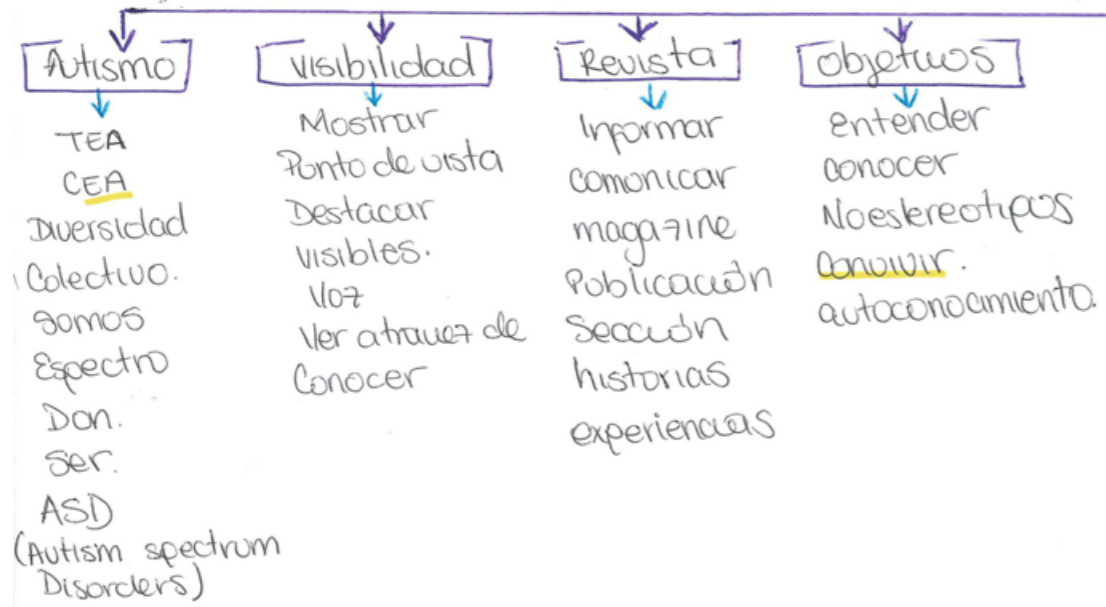 Autismo
TEA
CEA
Diversidad
Colectivo.
Somos
Espectro
Don.
Ser.
ASD
(Autism spectrum
Disorders)
Visibilidad
Mostrar
Punto de vista
Destacar
visibles.
Voz
Ver atravez de
Conocer
Revista
Informar
comunicar
magazine
Publicación
Sección
historias
experiencias
Objetivos
entender
conocer
No estereotipos
Convivir.
autoconocimiento.